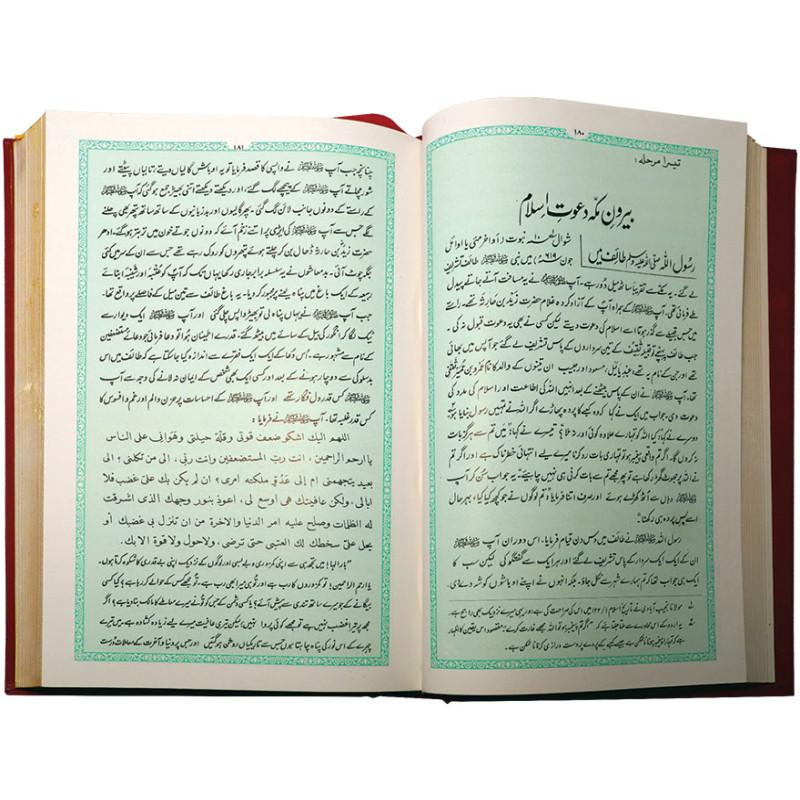 ۱۸۰
تیسرا مرحلہ:
بیرونِ مکہ دعوتِ اسلام
رسول اللہ ﷺ طائف میں
شوال ۱۰ نبوت (اواخر مئی یا اوائل
جون ۶۱۹ء) میں نبی ﷺ طائف تشریف
لے گئے۔ یہ مکے سے تقریباً ساٹھ میل دور ہے۔ آپ ﷺ نے یہ مسافت آتے جاتے پیدل
طے فرمائی تھی۔ آپ ﷺ کے ہمراہ آپ کے آزاد کردہ غلام حضرت زید بن حارثہ تھے۔ راستے
میں جس قبیلے سے گذر ہوتا اسے اسلام کی دعوت دیتے لیکن کسی نے بھی یہ دعوت قبول نہ کی۔
جب طائف پہنچے تو قبیلہ ثقیف کے تین سرداروں کے پاس تشریف لے گئے جو آپس میں بھائی
تھے اور جن کے نام یہ تھے، عبد یالیل، مسعود اور حبیب ان تینوں کے والد کا نام عمرو بن عمیر ثقفی
تھا۔ آپ ﷺ نے ان کے پاس بیٹھنے کے بعد انہیں اللہ کی اطاعت اور اسلام کی مدد کی
دعوت دی، جواب میں ایک نے کہا کہ وہ کعبے کا پردہ پھاڑے اگر اللہ نے تمہیں رسول بنایا ہو،
دوسرے نے کہا: کیا اللہ کو تمہارے علاوہ کوئی اور نہ ملا؟ تیسرے نے کہا: میں تم سے ہرگز بات
نہ کروں گا۔ اگر تم واقعی پیغمبر ہو تو تمہاری بات رد کرنا میرے لیے انتہائی خطرناک ہے اور اگر تم نے
اللہ پر جھوٹ گھڑ رکھا ہے تو پھر مجھے تم سے بات کرنی ہی نہیں چاہیئے۔ یہ جواب سن کر آپ
ﷺ وہاں سے اٹھ کھڑے ہوئے اور صرف اتنا فرمایا: تم لوگوں نے جو کچھ کیا کیا، بہرحال
اسے پس پردہ ہی رکھنا۔
رسول اللہ ﷺ نے طائف میں دس دن قیام فرمایا۔ اس دوران آپ ﷺ
ان کے ایک ایک سردار کے پاس تشریف لے گئے اور ہر ایک سے گفتگو کی لیکن سب کا
ایک ہی جواب تھا کہ تم ہمارے شہر سے نکل جاؤ۔ بلکہ انہوں نے اپنے اوباشوں کو شہ دے دی۔
مولانا نجیب آبادی نے تاریخ اسلام ۱/۱۲۲ میں اس کی صراحت کی ہے اور یہی میرے نزدیک بھی راجح ہے۔
۱۸۱
چنانچہ جب آپ ﷺ نے واپسی کا قصد فرمایا تو یہ اوباش گالیاں دیتے، تالیاں پیٹتے اور
شور مچاتے آپ ﷺ کے پیچھے لگ گئے، اور دیکھتے دیکھتے اتنی بھیڑ جمع ہو گئی کہ آپ ﷺ
کے راستے کے دونوں جانب لائن لگ گئی۔ پھر گالیوں اور بدزبانیوں کے ساتھ ساتھ پتھر بھی چلنے
لگے جس سے آپ ﷺ کی ایڑی پر اتنے زخم آئے کہ دونوں جوتے خون میں تربتر ہو گئے۔ ادھر
حضرت زید بن حارثہ ڈھال بن کر چلتے ہوئے پتھروں کو روک رہے تھے جس سے ان کے سر میں کئی
جگہ چوٹ آئی۔ بدمعاشوں نے یہ سلسلہ برابر جاری رکھا یہاں تک کہ آپ کو عتبہ اور شیبہ ابنائے
ربیعہ کے ایک باغ میں پناہ لینے پر مجبور کر دیا۔ یہ باغ طائف سے تین میل کے فاصلے پر واقع تھا۔
جب آپ ﷺ نے یہاں پناہ لی تو بھیڑ واپس چلی گئی اور آپ ﷺ ایک دیوار سے
ٹیک لگا کر انگور کی بیل کے سائے میں بیٹھ گئے۔ قدرے اطمینان ہوا تو دعا فرمائی جو دعائے مستضعفین
کے نام سے مشہور ہے۔ اس دعا کے ایک ایک فقرے سے اندازہ کیا جا سکتا ہے کہ طائف میں اس
بدسلوکی سے دوچار ہونے کے بعد اور کسی ایک بھی شخص کے ایمان نہ لانے کی وجہ سے آپ
ﷺ کس قدر دل فگار تھے اور آپ ﷺ کے احساسات پر حزن و الم اور غم و افسوس کا
کس قدر غلبہ تھا۔ آپ ﷺ نے فرمایا:
اللهم اليك اشكو ضعف قوتي وقلة حيلتي وهواني على الناس
يا ارحم الراحمين، انت رب المستضعفين وانت ربي، الى من تكلني؟ الى
بعيد يتجهمني ام الى عدو ملكته امري؟ ان لم يكن بك علي غضب فلا
ابالي، ولكن عافيتك هي اوسع لي، اعوذ بنور وجهك الذي اشرقت
له الظلمات وصلح عليه امر الدنيا والآخرة من ان تنزل بي غضبك أو
يحل علي سخطك لك العتبى حتى ترضى، ولا حول ولا قوة الا بك.
"بار الہا! میں تجھ ہی سے اپنی کمزوری و بے بسی اور لوگوں کے نزدیک اپنی بے قدری کا شکوہ کرتا ہوں۔
یا ارحم الراحمین! تو کمزوروں کا رب ہے اور تو ہی میرا بھی رب ہے، تو مجھے کس کے حوالے کر رہا ہے؟ کیا کسی
بیگانے کے جو میرے ساتھ تندی سے پیش آئے؟ یا کسی دشمن کے جس کو تو نے میرے معاملے کا مالک بنا دیا ہے؟ اگر
مجھ پر تیرا غضب نہیں ہے تو مجھے کوئی پروا نہیں لیکن تیری عافیت میرے لیے زیادہ کشادہ ہے، میں تیرے
چہرے کے اس نور کی پناہ چاہتا ہوں جس سے تاریکیاں روشن ہو گئیں اور جس پر دنیا و آخرت کے معاملات درست